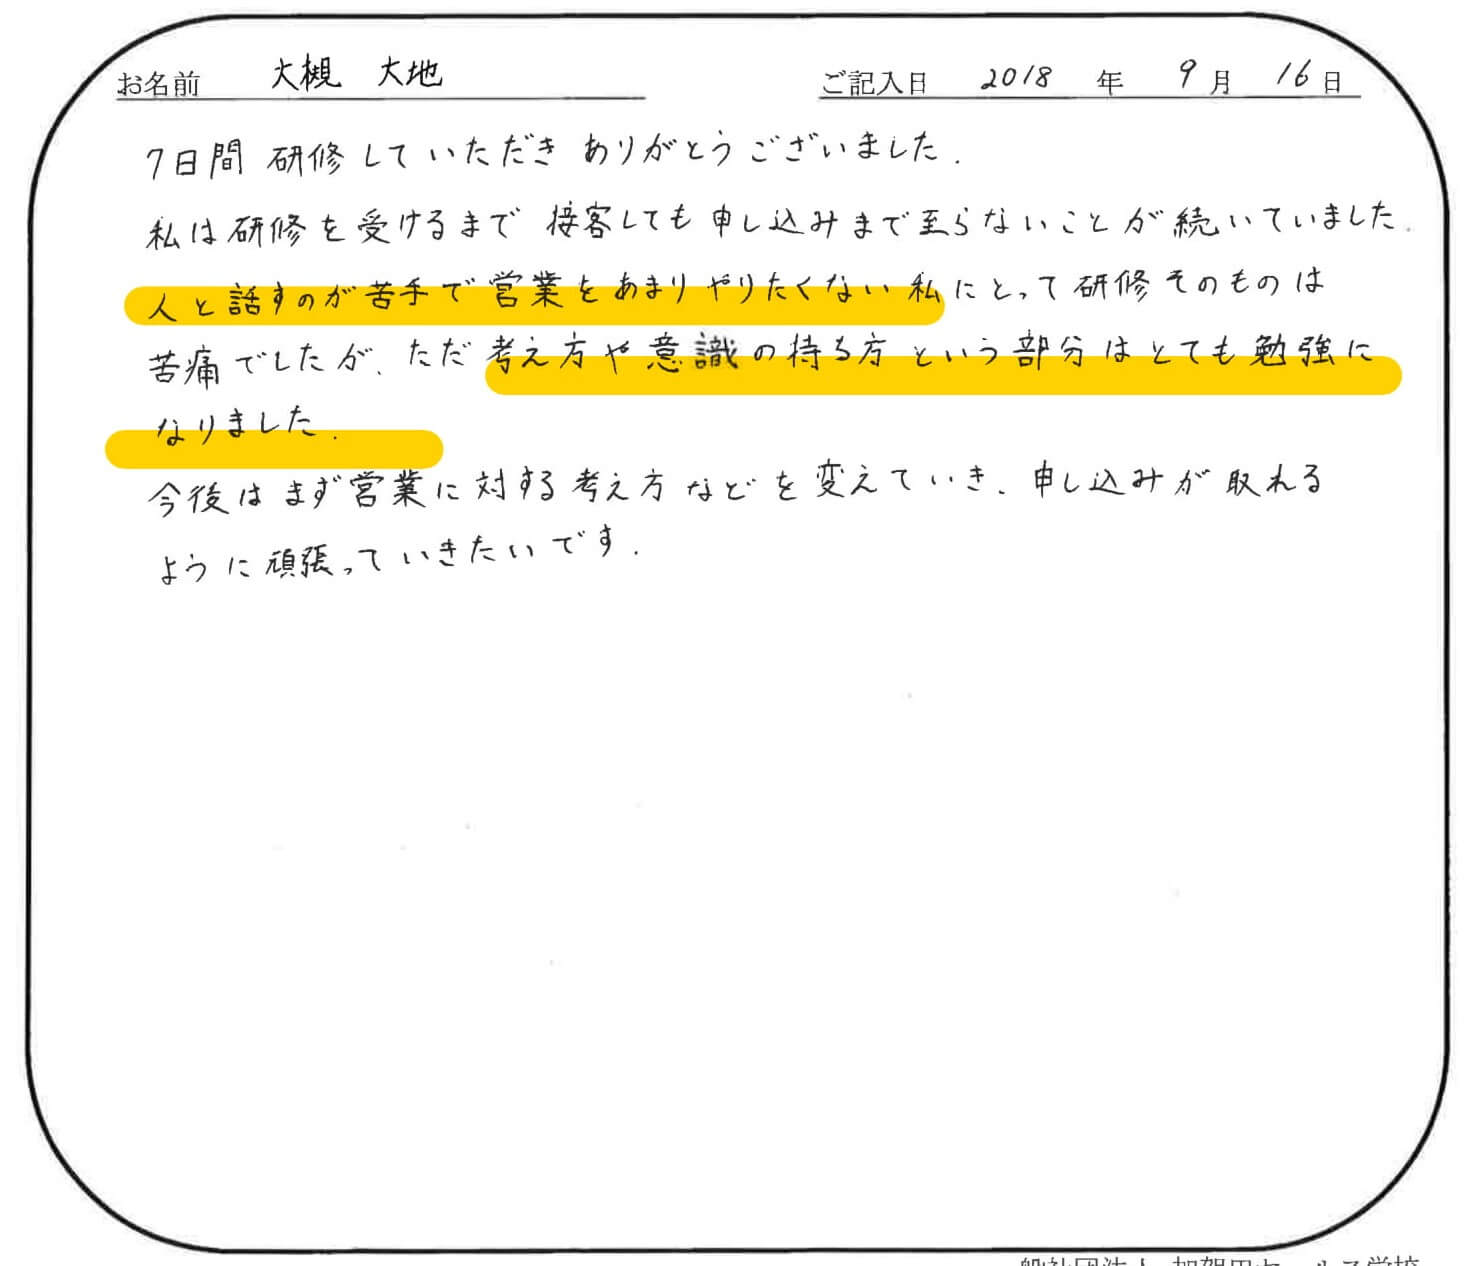 お名前 大槻 大地 ご記入日 2018 年 9 月 16 日
7日間 研修していただき ありがとうございました.
私は研修を受けるまで 接客しても申し込みまで至らないことが続いていました.
人と話すのが苦手で営業をあまりやりたくない私にとって研修そのものは
苦痛でしたが、ただ考え方や意識の持ち方という部分はとても勉強に
なりました.
今後はまず営業に対する考え方などを変えていき、申し込みが取れる
ように頑張っていきたいです.